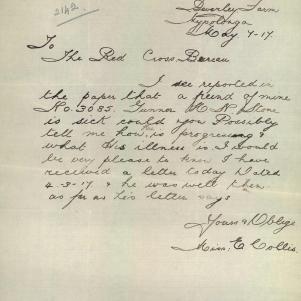 2142
Beverley Farm
Mypolonga
May 7-17.
To
The Red Cross Bureau
I see reported in
the paper that a friend of mine
No. 3085. Gunner H. R. Stone
is sick could you Possibly
tell me how he is progressing &
what His illness is. I would
be very please to know I have
received a letter today Dated
4-3-17 & he was well then
as far as his letter says
Yours & Oblige
Miss. E Collis.